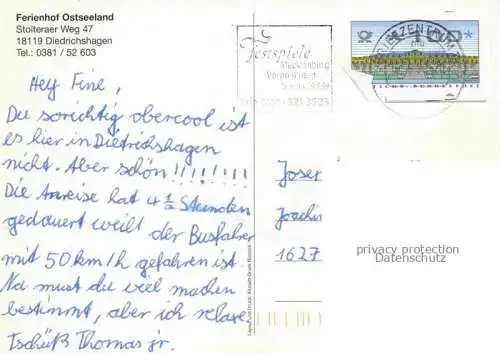 Ferienhof Ostseeland
Stolteraer Weg 47
18119 Diedrichshagen
Tel.: 0381 / 52 603
Hey Fine,
Du sorichtig obercool ist
es hier in Dietrichshagen
nicht. Aber schön!!!!!!!
Die Anreise hat 4 1/2 Stunden
gedauert weilt der Busfahrer
mit 50 km/h gefahren ist.
Na must du viel machen
bestimmt, aber ich relaxe
Tschüß Thomas jr.
Festspiele
Mecklenburg
Vorpommern
BRIEFZENTRUM
100*
DEUTSCHE BUNDESPOST
Josef
Joachi
1627
privacy protection
Datenschutz